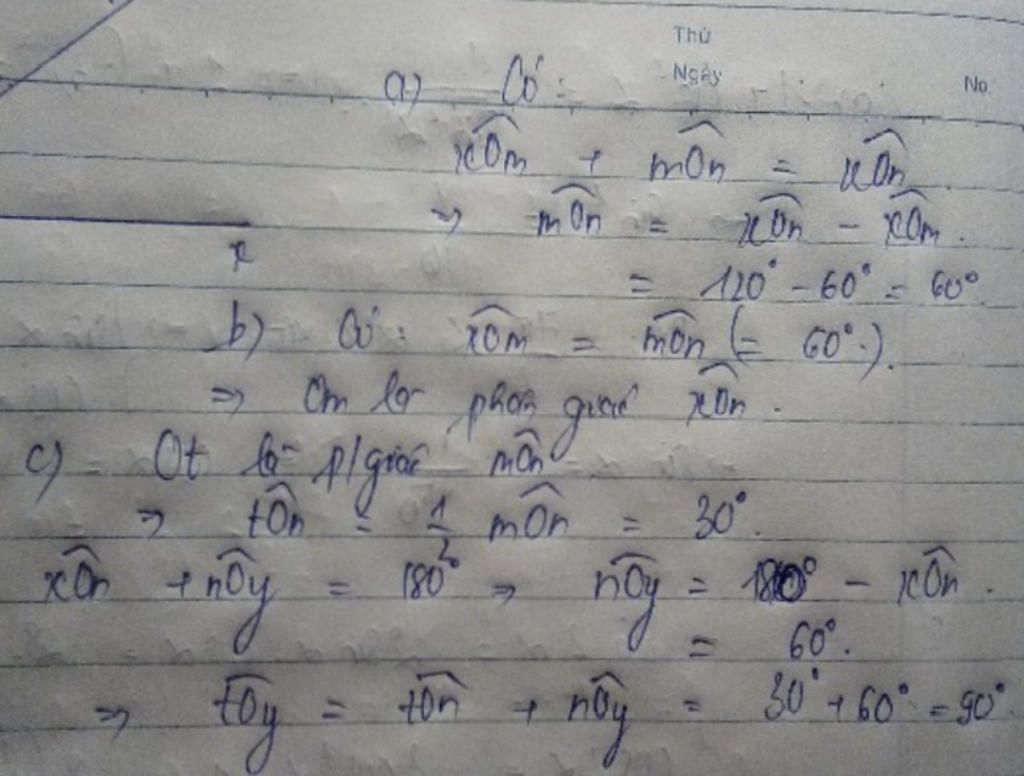 Thứ
Ngày
No.
a) Có:
xOm + mOn = xOn
⇒ mOn = xOn - xOm.
= 120° - 60° = 60°.
x
b) Có: xOm = mOn (= 60°.).
⇒ Om là phân giác xOn.
c) Ot là p/giác mOn
⇒ tOn = 1/2 mOn = 30°.
xOn + nOy = 180° ⇒ nOy = 180° - xOn.
= 60°.
⇒ tOy = tOn + nOy = 30° + 60° = 90°.